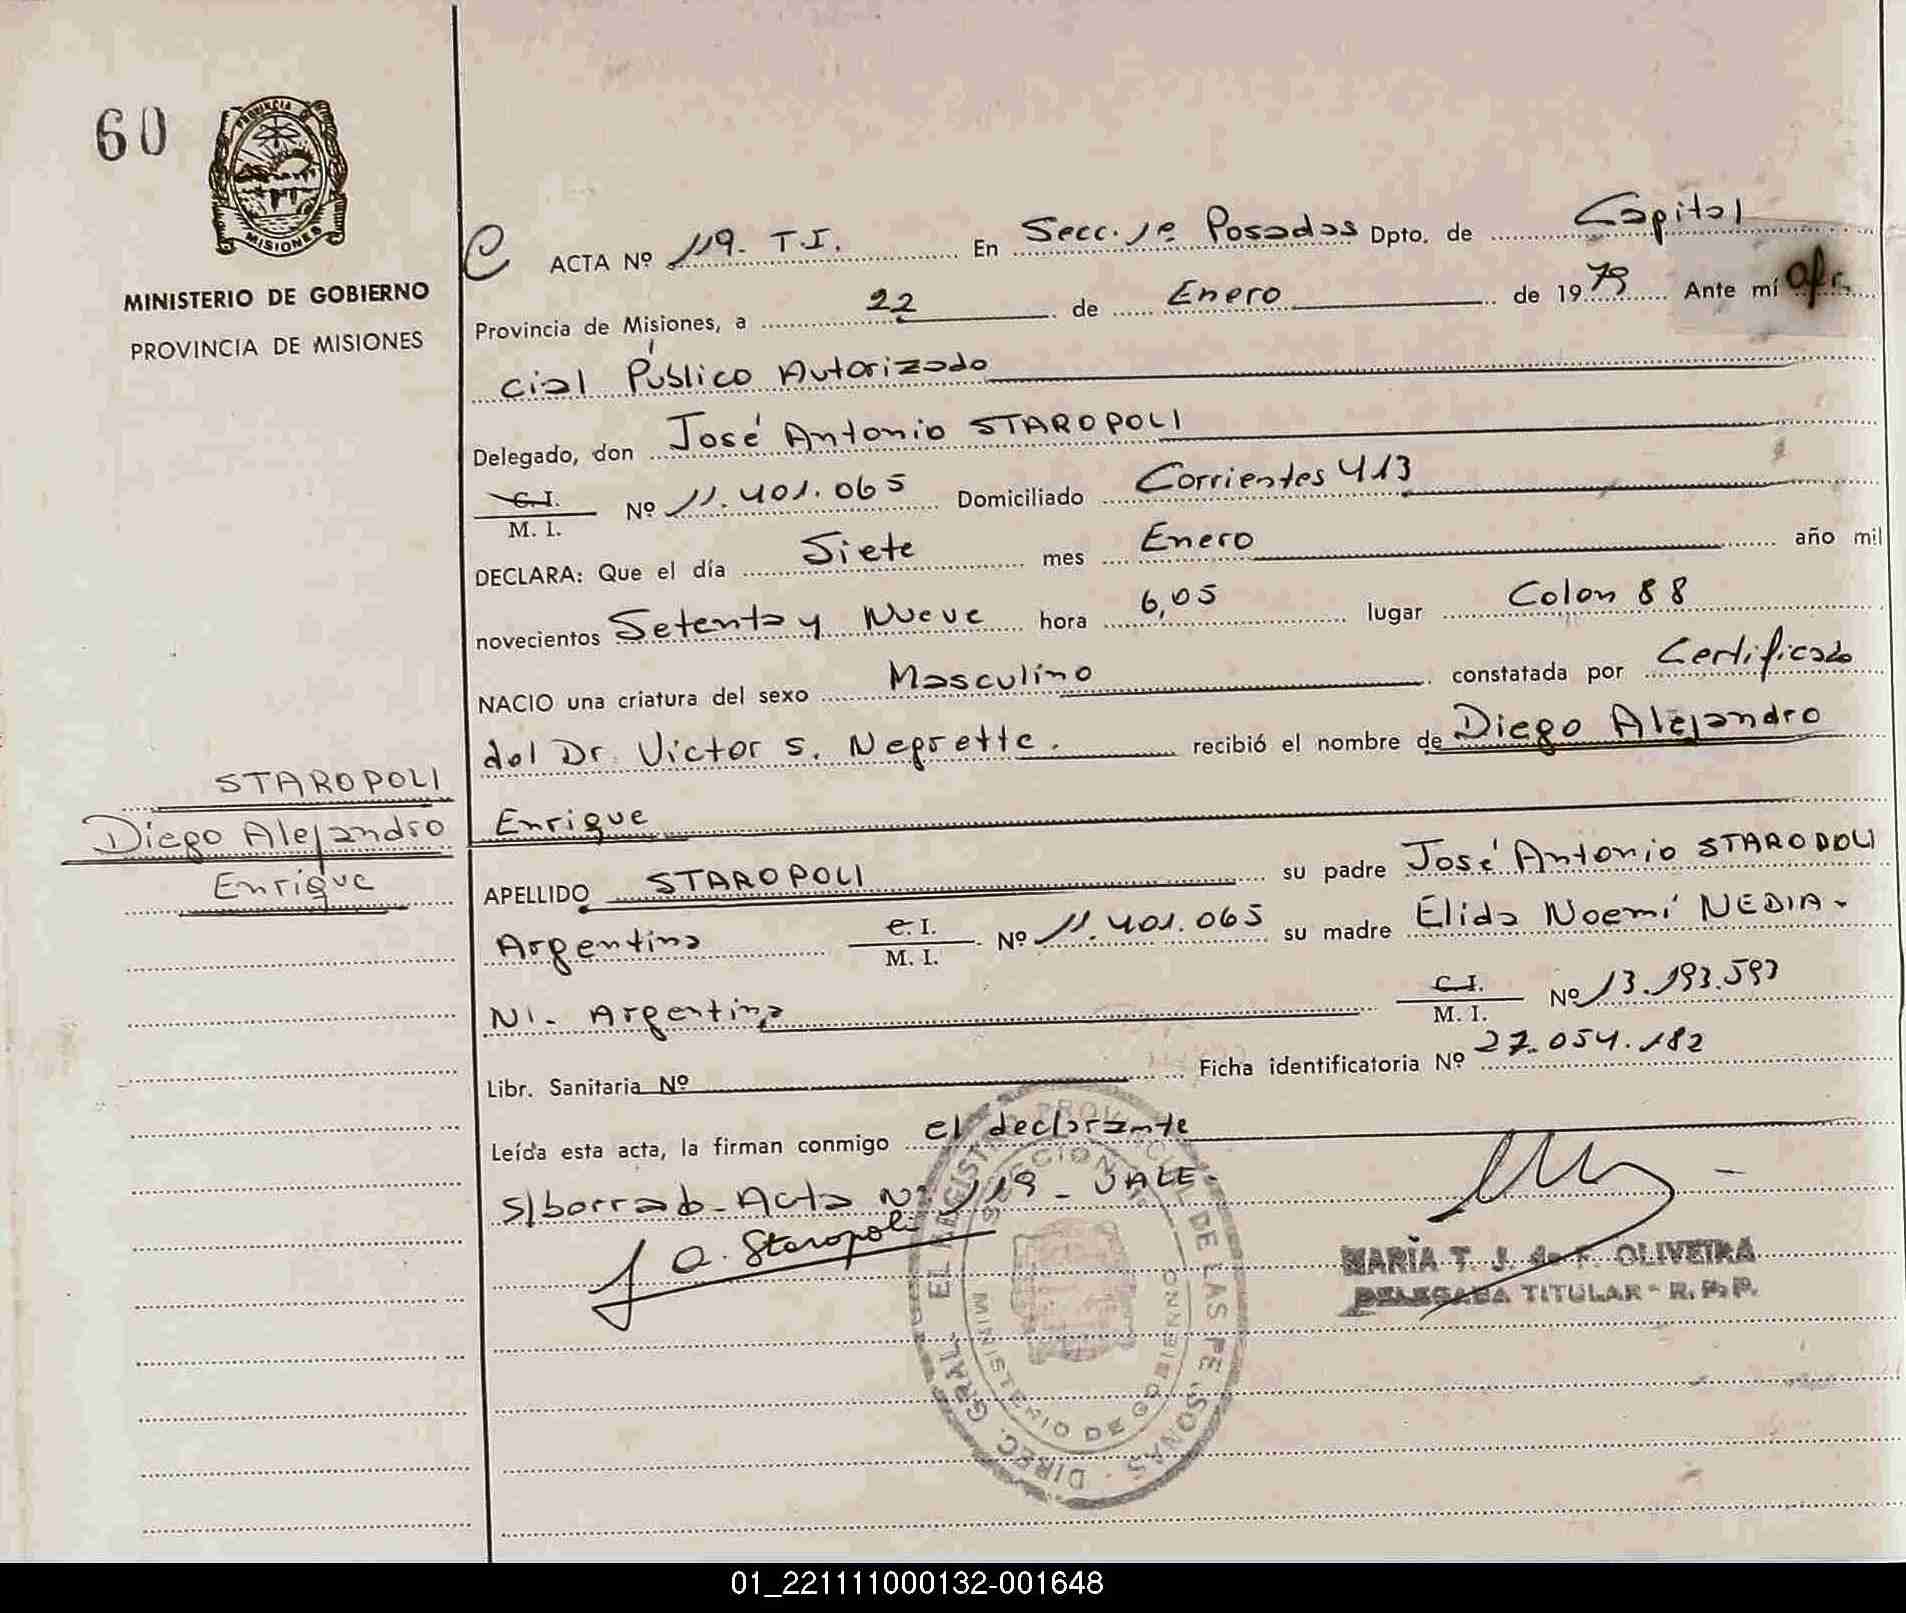 60
PROVINCIA D
MISIONES
MINISTERIO DE GOBIERNO
PROVINCIA DE MISIONES
C ACTA Nº 119. T.I. En Secc. 1ª Posadas Dpto. de Capital
Provincia de Misiones, a 22 de Enero de 1979 Ante mí Ofi
cial Público Autorizado
Delegado, don José Antonio STAROPOLI
C.I. M. I. Nº 11.401.065 Domiciliado Corrientes 413
DECLARA: Que el día Siete mes Enero año mil
novecientos Setenta y Nueve hora 6,05 lugar Colon 88
NACIO una criatura del sexo Masculino constatada por Certificado
del Dr. Victor S. Negrette. recibió el nombre de Diego Alejandro
Enrique
STAROPOLI
Diego Alejandro
Enrique
APELLIDO STAROPOLI su padre José Antonio STAROPOLI
Argentina C.I. M. I. Nº 11.401.065 su madre Elida Noemí NEDIA-
NI. Argentina C.I. M. I. Nº 13.193.593
Libr. Sanitaria Nº Ficha identificatoria Nº 27.054.182
Leída esta acta, la firman conmigo el declarante
S/borrado-Acta Nº 119 - VALE-
J A. Staropoli
MARÍA T. J. de F. OLIVEIRA
DELEGADA TITULAR - R. P. P.
DIREC. GRAL. DEL REGISTRO PROVINCIAL DE LAS PERSONAS
SECCION
MINISTERIO DE GOBIERNO
01_221111000132-001648